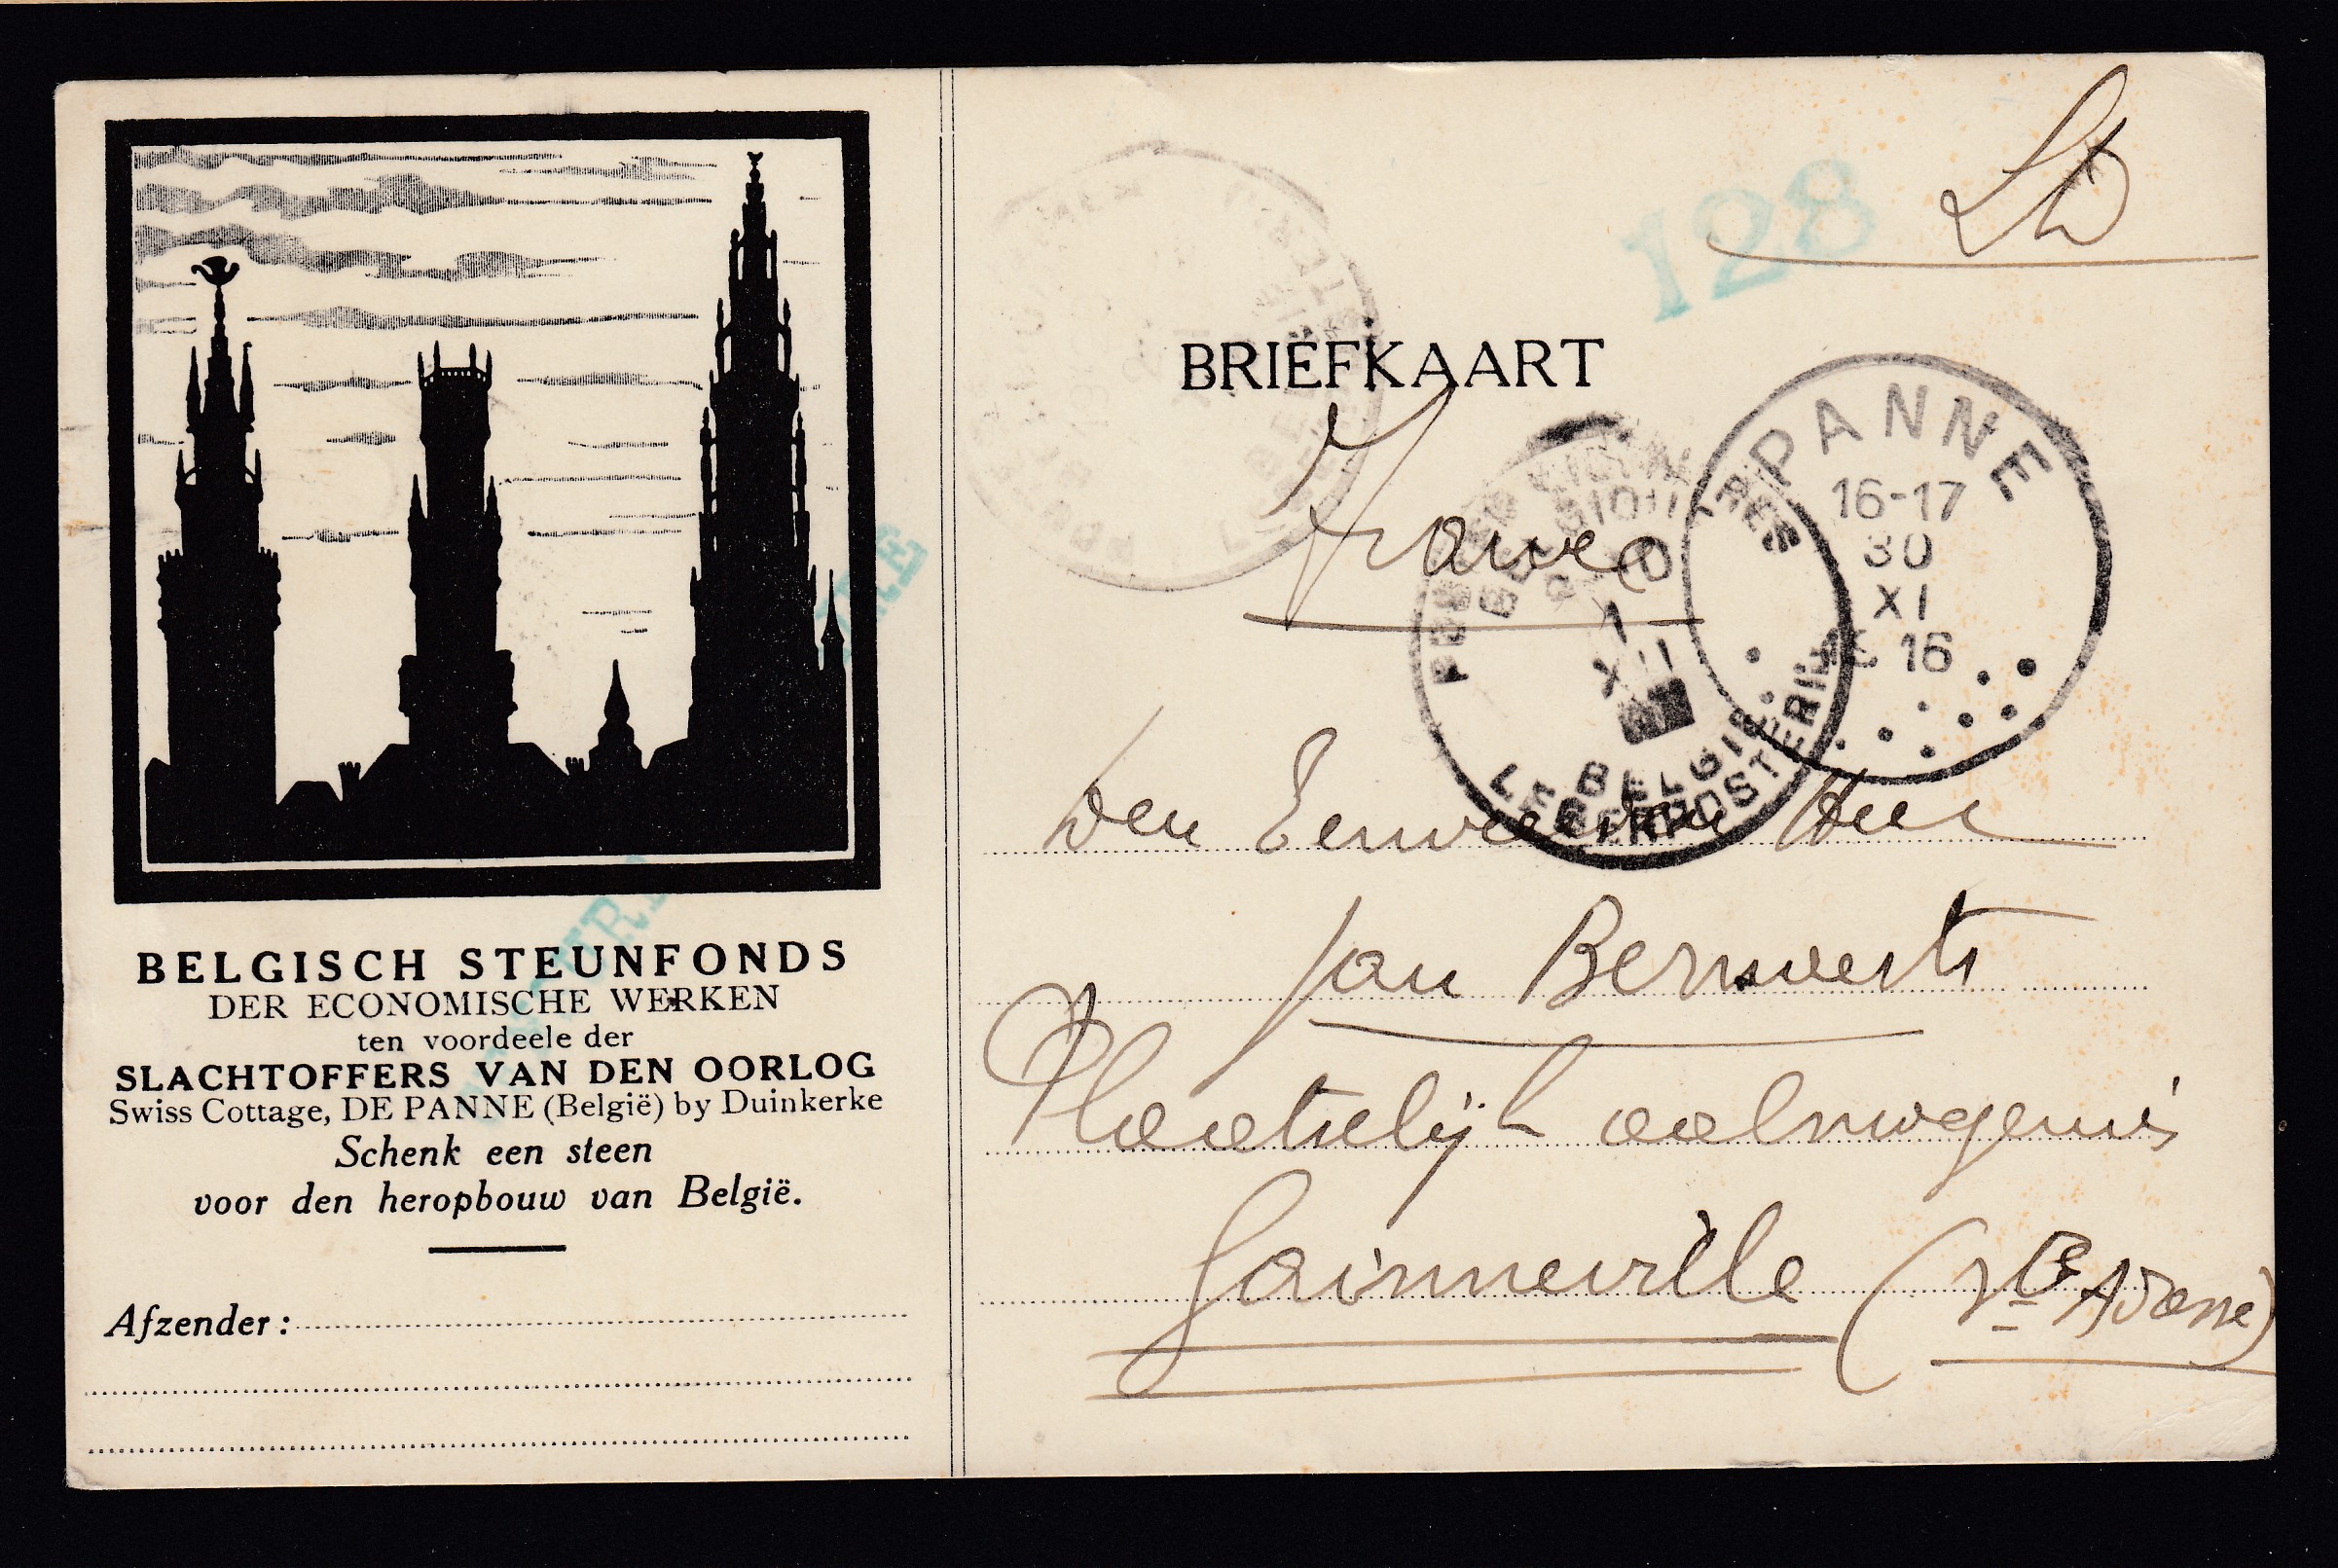 BELGISCH STEUNFONDS
DER ECONOMISCHE WERKEN
ten voordeele der
SLACHTOFFERS VAN DEN OORLOG
Swiss Cottage, DE PANNE (België) by Duinkerke
Schenk een steen
voor den heropbouw van België.
Afzender :
128
BRIEFKAART
PANNE
16-17
30
XI
16
1
XII
LE BELGIE
Den Eerweerden Heer
Jan Bernaerts
Plaetselijk aalmoezenier
Gainneville